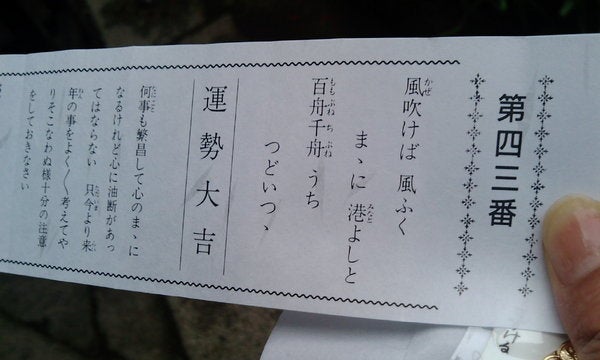 第四三番
風吹けば 風ふく
まゝに 港よしと
百舟千舟 うち
つどいつゝ
運勢大吉
何事も繁昌して心のまゝに
なるけれど心に油断があっ
てはならない 只今より来
年の事をよく〱考えてや
りそこなわぬ様十分の注意
をしておきなさい